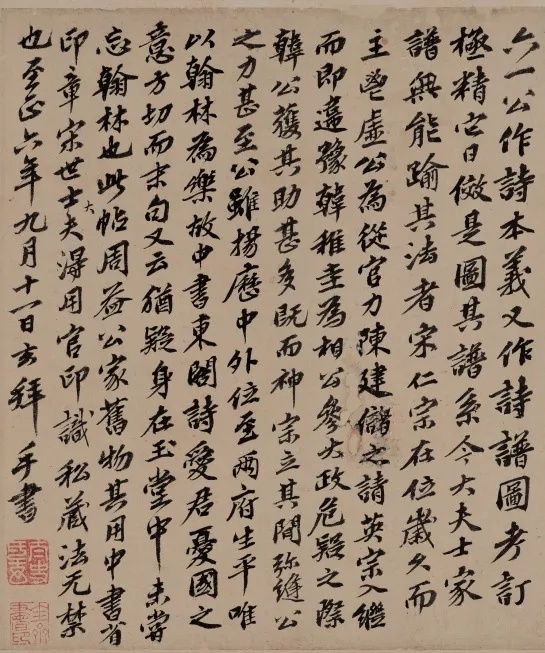 六一公作詩本義又作詩譜圖考訂
極精它日倣是圖其譜系今大夫士家
譜無能踰其法者宋仁宗在位歲久而
主鬯虛公為從官力陳建儲之請英宗入繼
而即違豫韓稚圭為相公參大政危疑之際
韓公獲其助甚多既而神宗立其間弥縫公
之力甚至公雖揚歷中外位至两府生平唯
以翰林為樂故中書東閣詩愛君憂國之
意方切而末句又云猶疑身在玉堂中未嘗
忘翰林也此帖周益公家舊物其用中書省
印章宋世士大夫得用官印識私藏法无禁
也至正六年九月十一日玄拜手書